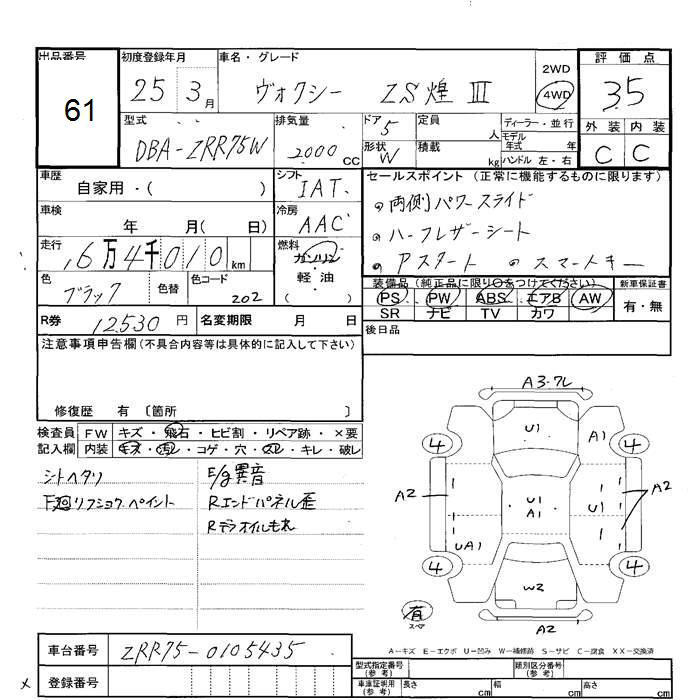 出品番号
61
初度登録年月
25 3月
車名・グレード
ヴォクシー ZS煌 Ⅲ
2WD
4WD
評価点
3.5
外装 内装
C C
型式
DBA-ZRR75W
排気量
2000 CC
ドア 5
形状 W
定員 人
積載 kg
ディーラー・並行
モデル年式 年
ハンドル 左・右
車歴
自家用・( )
シフト
IAT
車検
年 月( 日)
冷房
AAC
走行
6万4千010 km
燃料
ガソリン
・
軽油
( )
色
ブラック
色替
色コード
202
R券
12530 円
名変期限 月 日
セールスポイント (正常に機能するものに限ります)
両側パワースライド
ハーフレザーシート
Pスタート スマートキー
装備品 (純正品に限り○をつけてください)
PS PW ABS エアB AW
SR ナビ TV カワ
新車保証書
有・無
後日品
注意事項申告欄(不具合内容等は具体的に記入して下さい)
修復歴 有 〔箇所 〕
検査員記入欄
FW キズ・飛石・ヒビ割・リペア跡・×要
内装 キズ・汚レ・コゲ・穴・スレ・キレ・破レ
シートヘタリ
下廻リフショク.ペイント
E/g異音
Rエンドパネル歪
Rデフオイルもれ
A3・フレ
U1
A1
4
4
A2
U1
A1
U1
A2
UA1
4
4
W2
有
スペア
A2
A-キズ E-エクボ U-凹み W-補修跡 S-サビ C-腐食 XX-交換済
車台番号
ZRR75-0105435
登録番号
型式指定番号(参考)
類別区分番号(参考)
車庫証明用(参考)
長さ cm
幅 cm
高さ cm
×